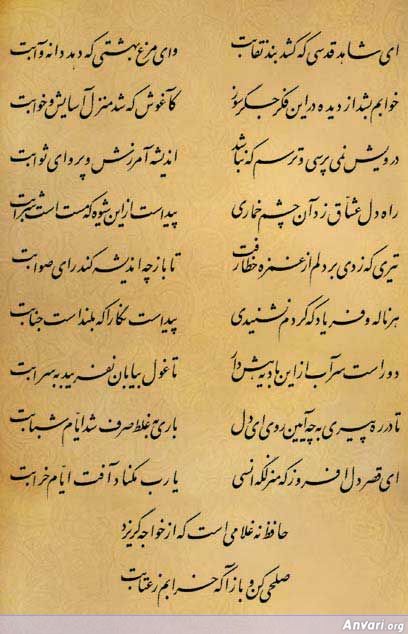 ای شاهد قدسی که کشد بند نقابت
وای مرغ بهشتی که دهد دانه و آبت
خوابم بشد از دیده در این فکر جگرسوز
کاغوش که شد منزل آسایش و خوابت
درویش نمی‌پرسی و ترسم که نباشد
اندیشه آمرزش و پروای ثوابت
راه دل عشاق زد آن چشم خماری
پیداست از این شیوه که مست است شرابت
تیری که زدی بر دلم از غمزه خطا رفت
تا باز چه اندیشه کند رای صوابت
هر ناله و فریاد که کردم نشنیدی
پیداست نگارا که بلند است جنابت
دور است سر آب از این بادیه هش دار
تا غول بیابان نفریبد به سرابت
تا در ره پیری به چه آیین روی ای دل
باری به غلط صرف شد ایام شبابت
ای قصر دل افروز که منزلگه انسی
یا رب مکناد آفت ایام خرابت
حافظ نه غلامی است که از خواجه گریزد
صلحی کن و باز آ که خرابم ز عتابت
Anvari.org